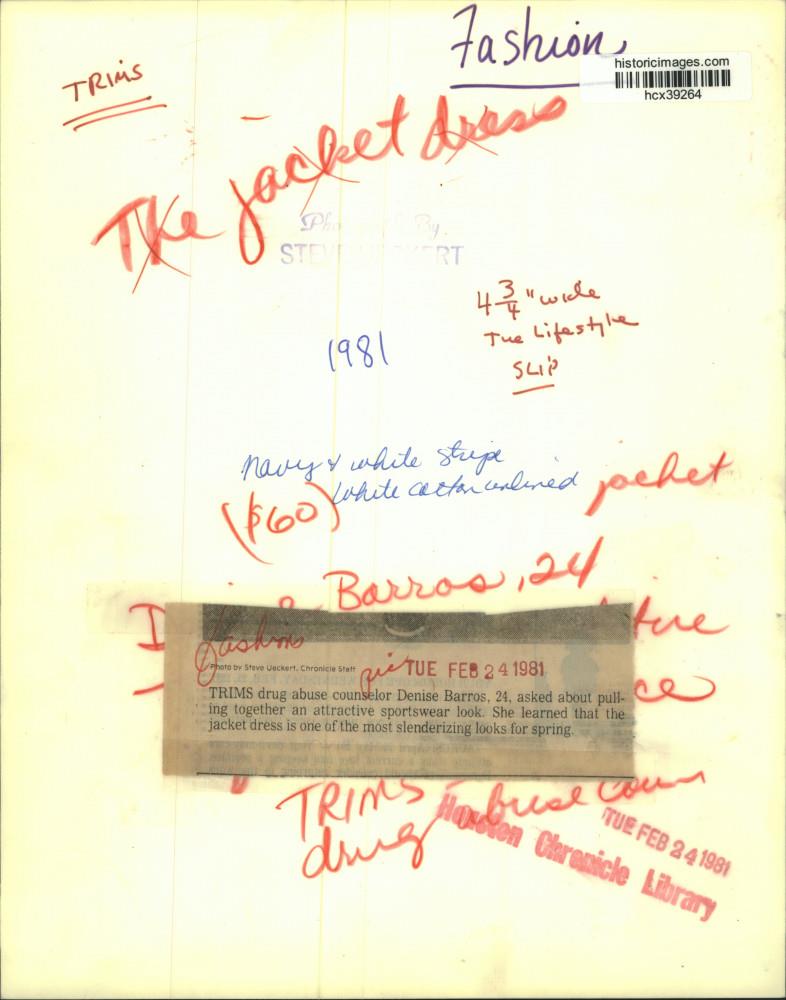 Fashion
historicimages.com
hcx39264
TRIMS
The jacket dress
Photograph By
STEVE UECKERT
4 3/4" wide
The Lifestyle
SLIP
1981
navy & white stripe
white cotton unlined jacket
($60)
Barros, 24
fashion
pic
Photo by Steve Ueckert, Chronicle Staff
TUE FEB 24 1981
TRIMS drug abuse counselor Denise Barros, 24, asked about pull-
ing together an attractive sportswear look. She learned that the
jacket dress is one of the most slenderizing looks for spring.
TRIMS
drug abuse coun
TUE FEB 24 1981
Houston Chronicle Library